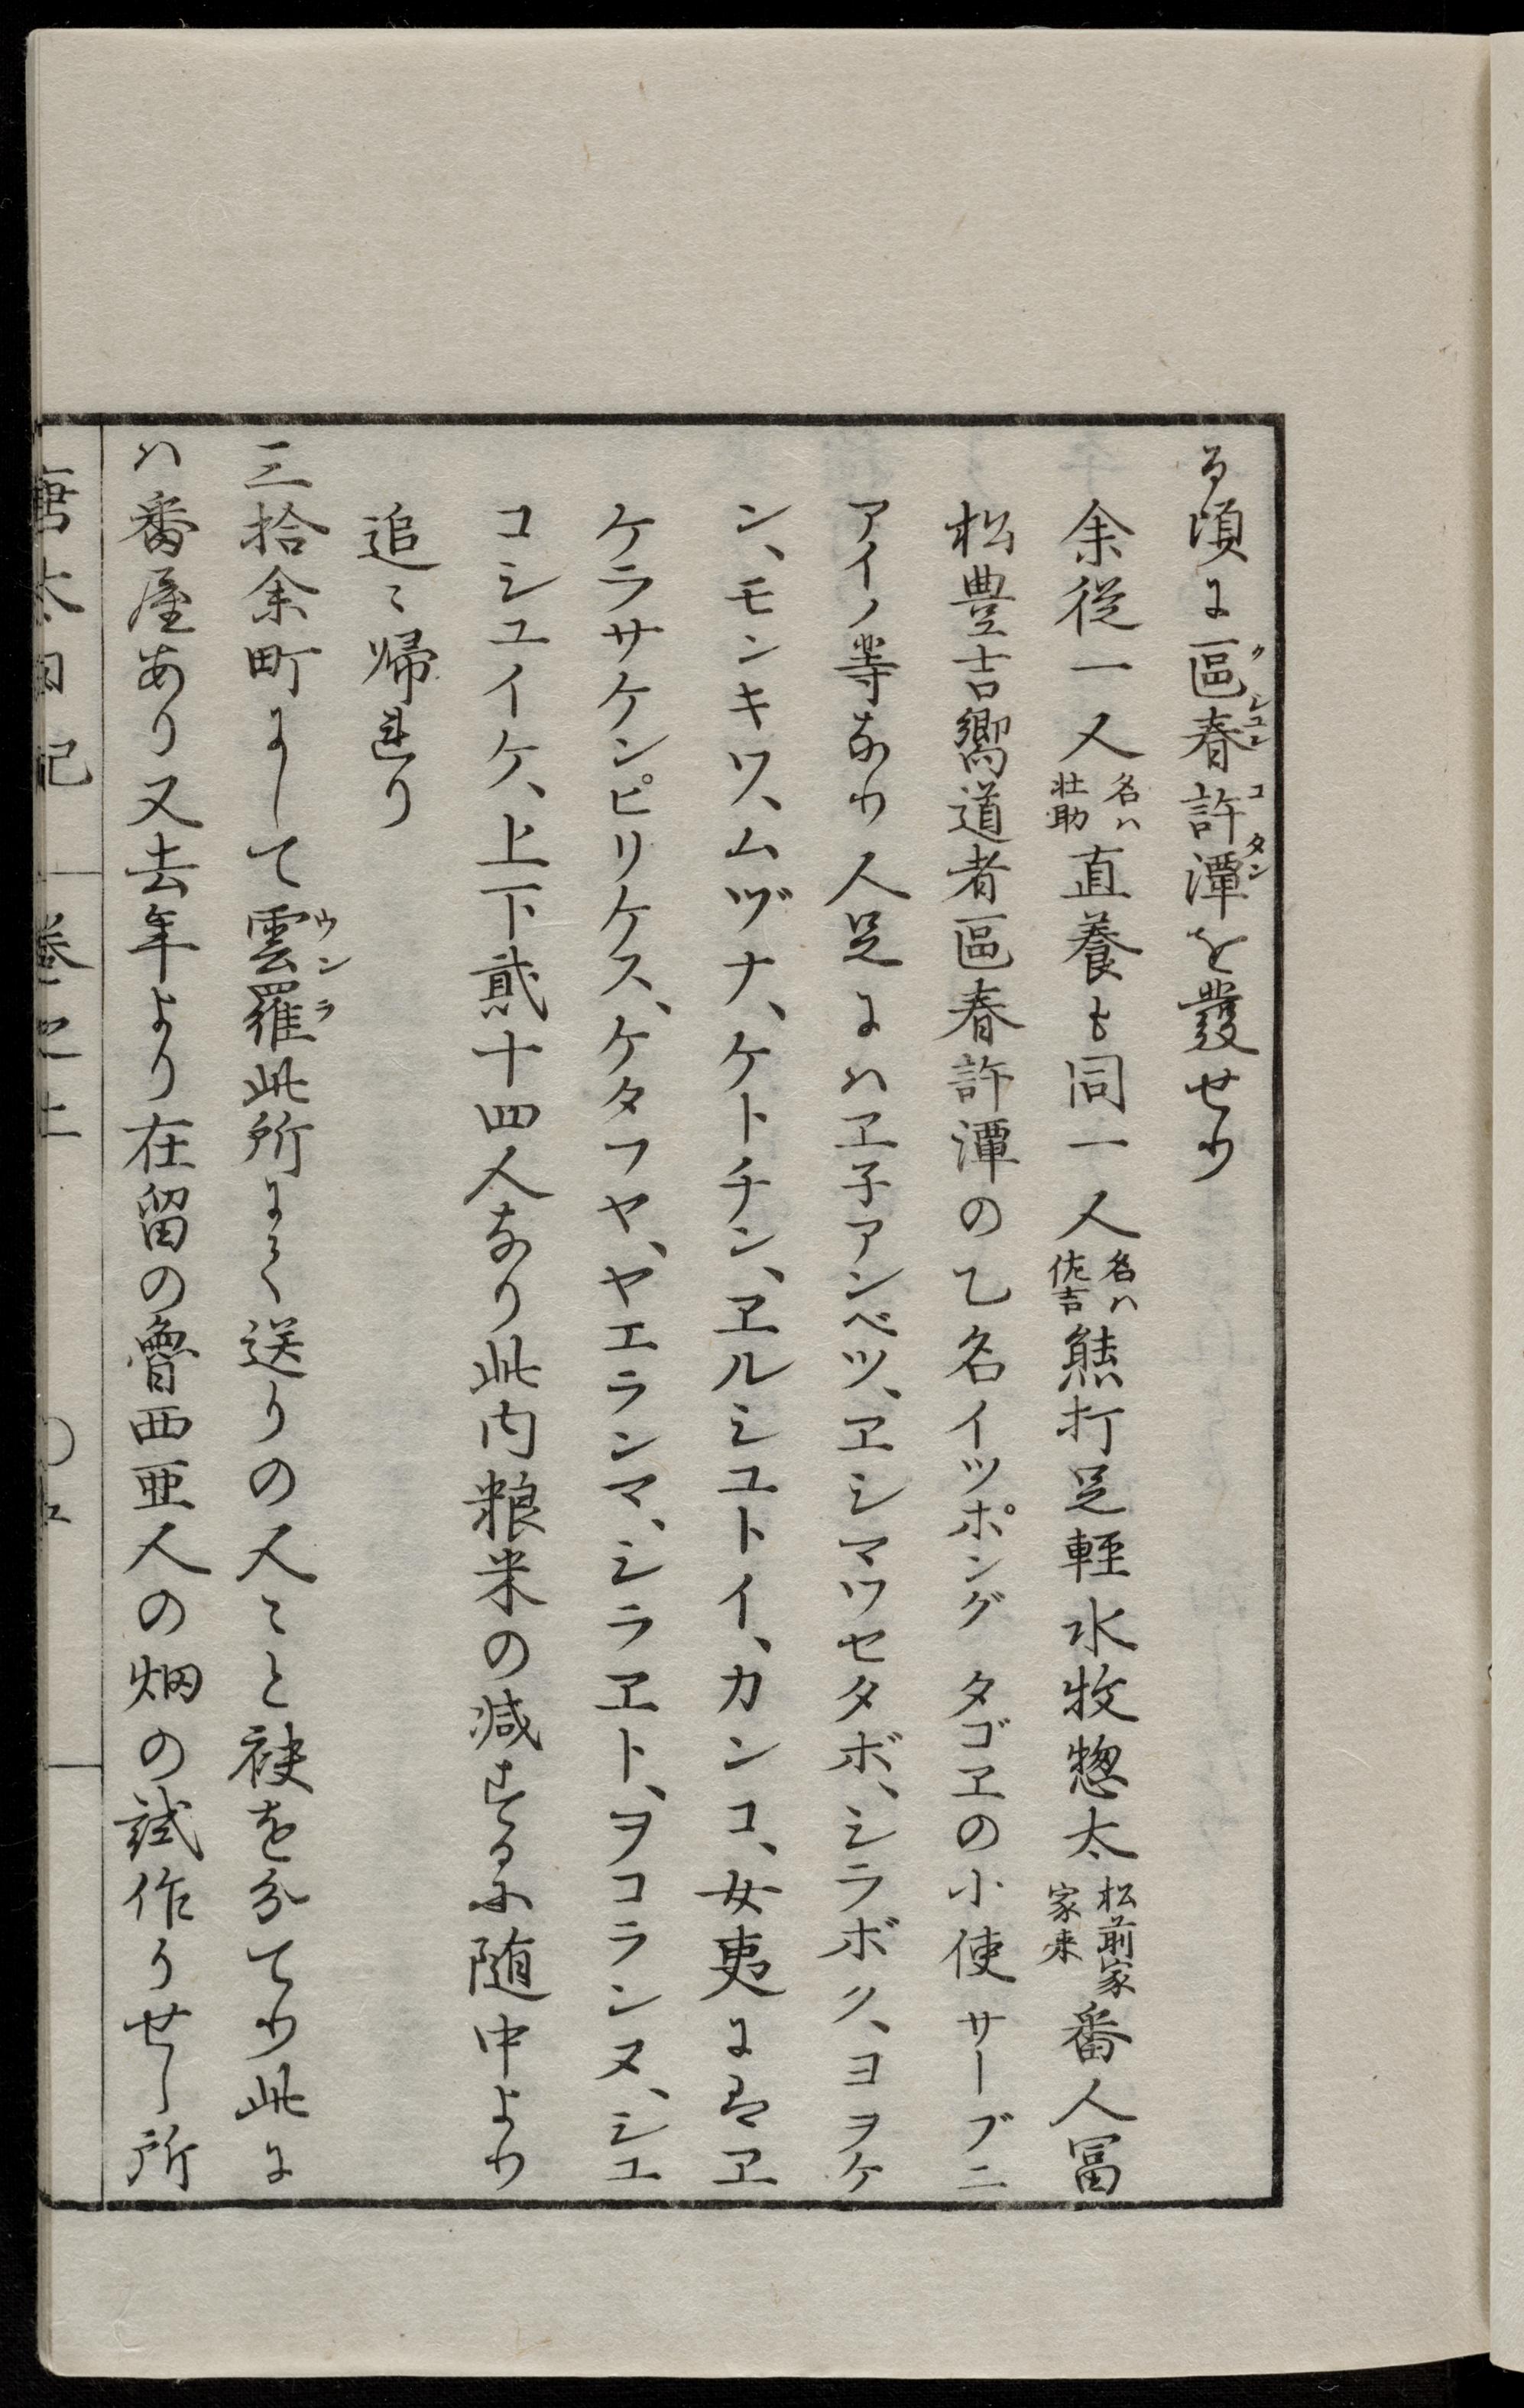 る頃に區春許潭を發せり
クシュンコタン
余從一人名ハ壮助直養も同一人名ハ佐吉熊打足輕水牧惣太松前家家来番人冨
松豊吉嚮道者區春許潭の乙名イツポング　タゴヱの小使サーブニ
アイノ等なり人足にハヱ子アンベツ、ヱシマツセタボ、シラボク、ヨヲケ
ン、モンキワ、ムヅナ、ケトチン、ヱルシユトイ、カンコ、女夷にはヱ
ケラサケンピリケス、ケタフヤ、ヤエランマ、シラヱト、ヲコランヌ、シユ
コシユイケ、上下貳十四人なり此内粮米の减するに随中より
追〻帰れり
三拾余町にして雲羅此所にて送りの人〻と袂を分てり此に
ウンラ
ハ番屋あり又去年より在留の魯西亜人の畑の試作りせし所
唐太日記　卷之上　〇五